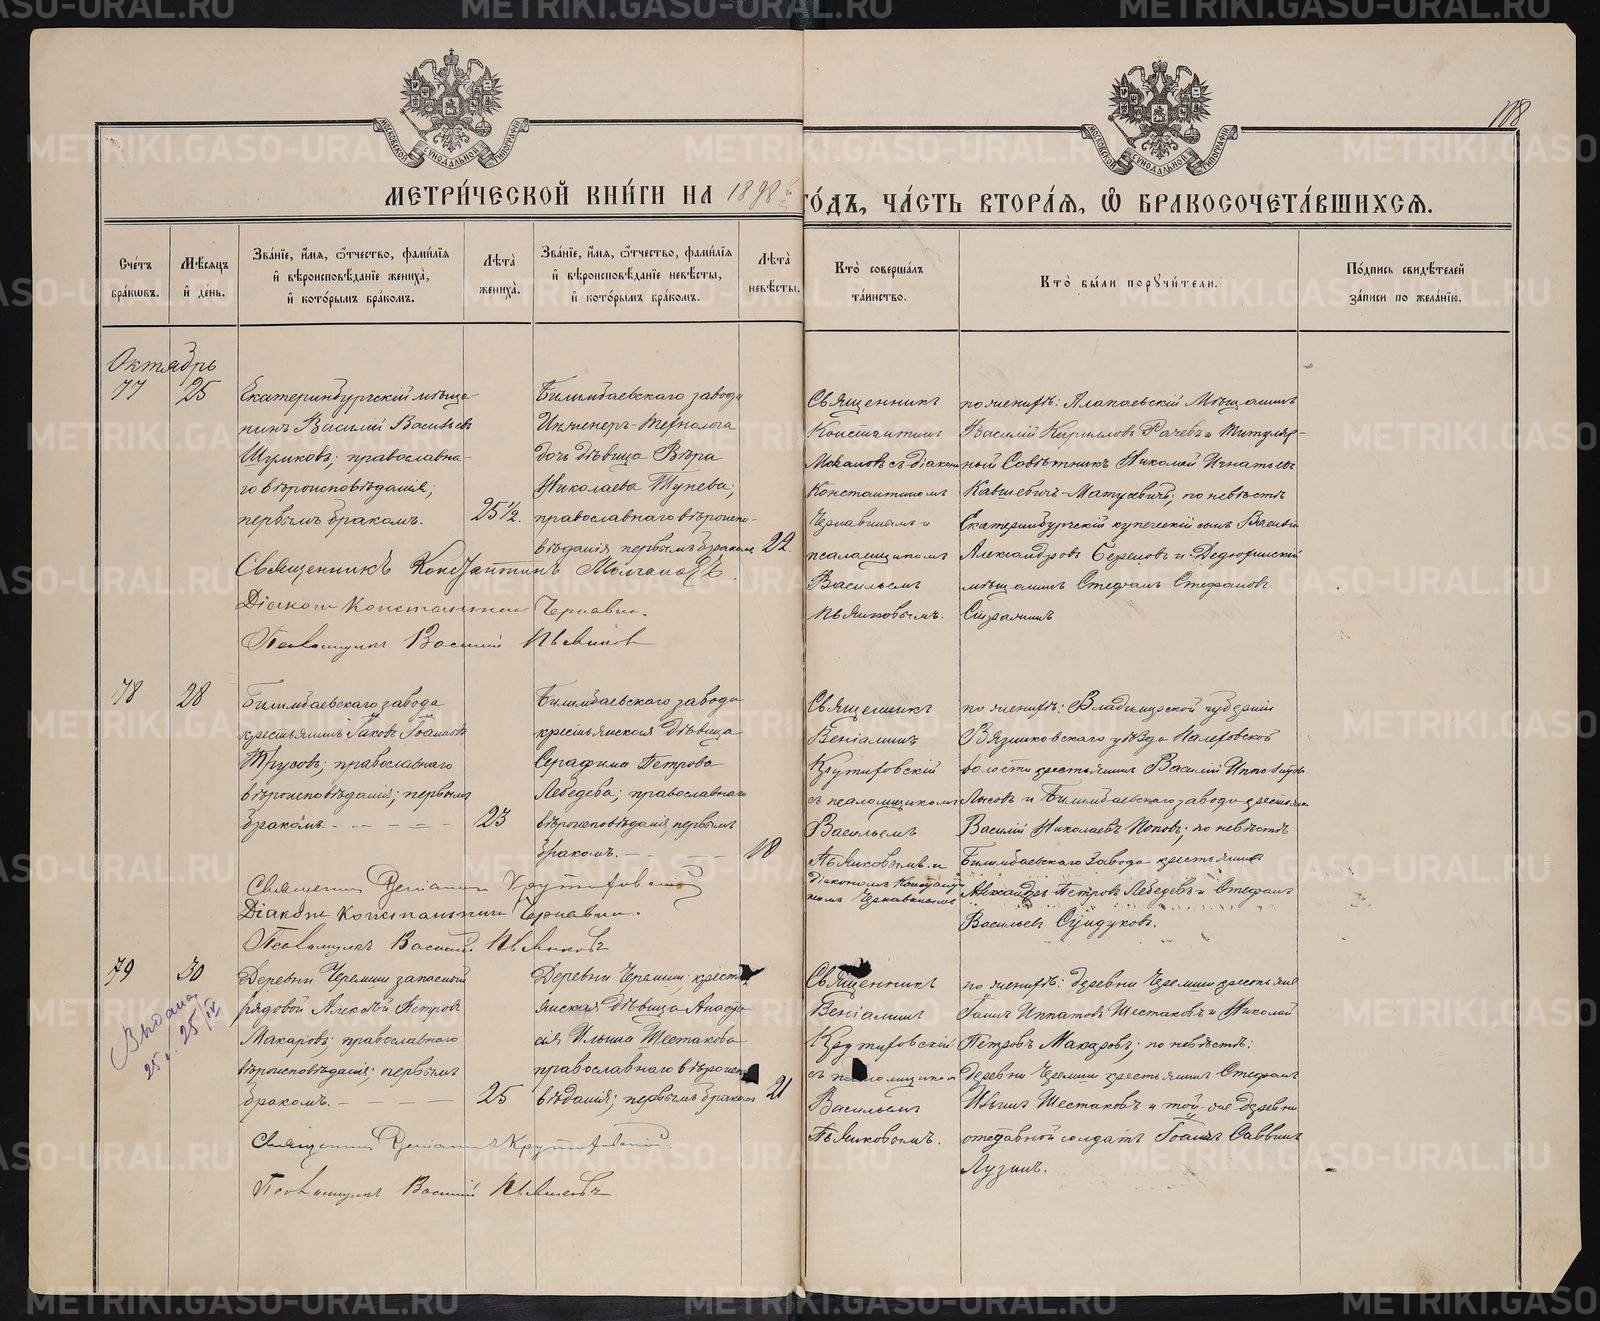 108
МЕТРИ́ЧЕСКОЙ КНИ́ГИ НА 1898 й ГО́ДЪ, ЧА́СТЬ ВТОРА́Я, Ѡ҆ БРАКОСОЧЕТА́ВШИХСѦ.
МОСКОВСКОЙ СѴНОДАЛЬНОЙ ТИПОГРАФІИ
МОСКОВСКОЙ СѴНОДАЛЬНОЙ ТИПОГРАФІИ
Сче́тъ бра́кѡвъ.
Мѣ́сяцъ и҆ де́нь.
Зва́нїе, и҆́мѧ, ѻ҆́тчество, фамі́лїѧ и҆ вѣроисповѣ́данїе жениха̀, и҆ кото́рымъ бра́комъ.
Лѣ́та жениха̀.
Зва́нїе, и҆́мѧ, ѻ҆́тчество, фамі́лїѧ и҆ вѣроисповѣ́данїе невѣ́сты, и҆ кото́рымъ бра́комъ.
Лѣ́та невѣ́сты.
Кто̀ соверша́лъ та́инство.
Кто̀ бы́ли порꙋчи́тели.
По́дпись свидѣ́телей за́писи по жела́нїю.
Октябрь
77
25
Екатеринбургскій мѣща-
нинъ Василій Васильевъ
Шумковъ; православна-
го вѣроисповѣданія;
первымъ бракомъ.
25 1/2.
Билимбаевскаго завода
Инженеръ-Технолога
дочь дѣвица Вѣра
Николаева Тунева;
православнаго вѣроиспо-
вѣданія первымъ бракомъ
22.
Священникъ
Константинъ
Молчановъ съ діакон
Константиномъ
Чернавинымъ и
псаломщикомъ
Васильемъ
Пьянковымъ.
по женихѣ: Алапаевскій Мѣщанинъ
Василій Кирилловъ Рачевъ и Титуляр-
ный Совѣтникъ Николай Игнатьевъ
Кавшевичъ-Матусевичъ; по невѣстѣ
Екатеринбургскій купеческій сынъ Василій
Александровъ и Дедюхинскій
мѣщанинъ Стефанъ Стефановъ
Священникъ Константинъ Молчановъ
Діаконъ Константинъ Чернавинъ.
Псаломщикъ Василій Пьянковъ
78
28
Билимбаевскаго завода
крестьянинъ Іаковъ Іоанновъ
Трусовъ; православнаго
вѣроисповѣданія; первымъ
бракомъ. - - - - -
23
Билимбаевскаго завода
крестьянская дѣвица
Серафима Петрова
Лебедева; православнаго
вѣроисповѣданія, первымъ
бракомъ. - - -
18
Священникъ
Веніаминъ
Крутиховскій
съ псаломщикомъ
Васильемъ
Пьянковымъ и
діакономъ Константи
номъ Чернавинымъ
по женихѣ: Владимірской губерніи
Вязниковскаго уѣзда Палеховской
волости крестьянинъ Василій Ипполитовъ
Лысовъ и Билимбаевскаго завода крестьян
Василій Николаевъ Поповъ; по невѣстѣ
Билимбаевскаго Завода крестьянинъ
Александръ Петровъ Лебедевъ и Стефанъ
Васильевъ Сундуковъ.
Священникъ Веніаминъ Крутиховскій
Діаконъ Константинъ Чернавинъ.
Псаломщикъ Василій Пьянковъ
79
30
Выдана
25 г. 25/IV
Деревни Черемши запасный
рядовой Алексѣй Петровъ
Макаровъ; православнаго
вѣроисповѣданія; первымъ
бракомъ. - - - - -
25
Деревни Черемши; кресть
янская дѣвица Анаста
сія Ильина Шестакова
православнаго вѣроиспо
вѣданія; первымъ бракомъ
21
Священникъ
Веніаминъ
Крутиховскій
съ псаломщиком
Васильемъ
Пьянковымъ.
по женихѣ: деревни Черемши крестьяне
Іоаннъ Ипатовъ Шестаковъ и Николай
Петровъ Макаровъ; по невѣстѣ:
деревни Черемши крестьянинъ Стефанъ
Ильинъ Шестаковъ и той-же деревни
отставной солдатъ Іоаннъ Саввинъ
Лузинъ.
Священникъ Веніаминъ Крутиховскій.
Псаломщикъ Василій Пьянковъ